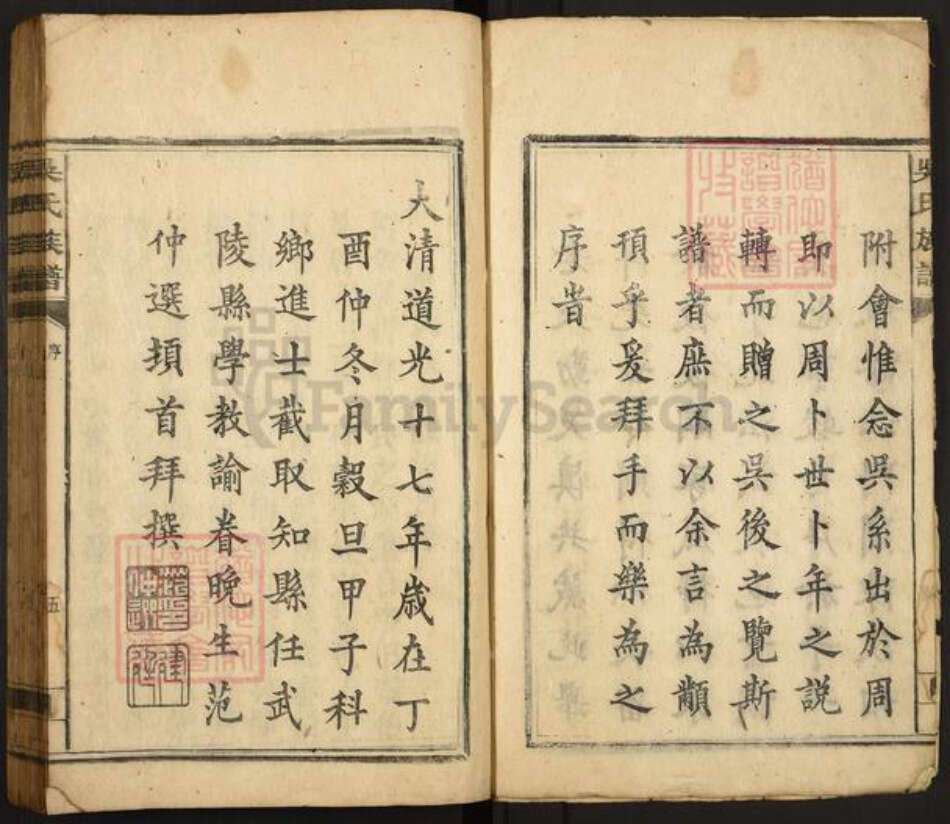 附會惟念吳系出於周
即以周卜世卜年之説
轉而贈之吳後之覽斯
譜者庶不以余言為顢
頇乎爰拜手而樂為之
序旹
大清道光十七年歲在丁
酉仲冬月穀旦甲子科
鄉進士截取知縣任武
陵縣學教諭眷晚生范
仲選頓首拜撰
吳氏族譜
序
五
吳氏族譜
FamilySearch